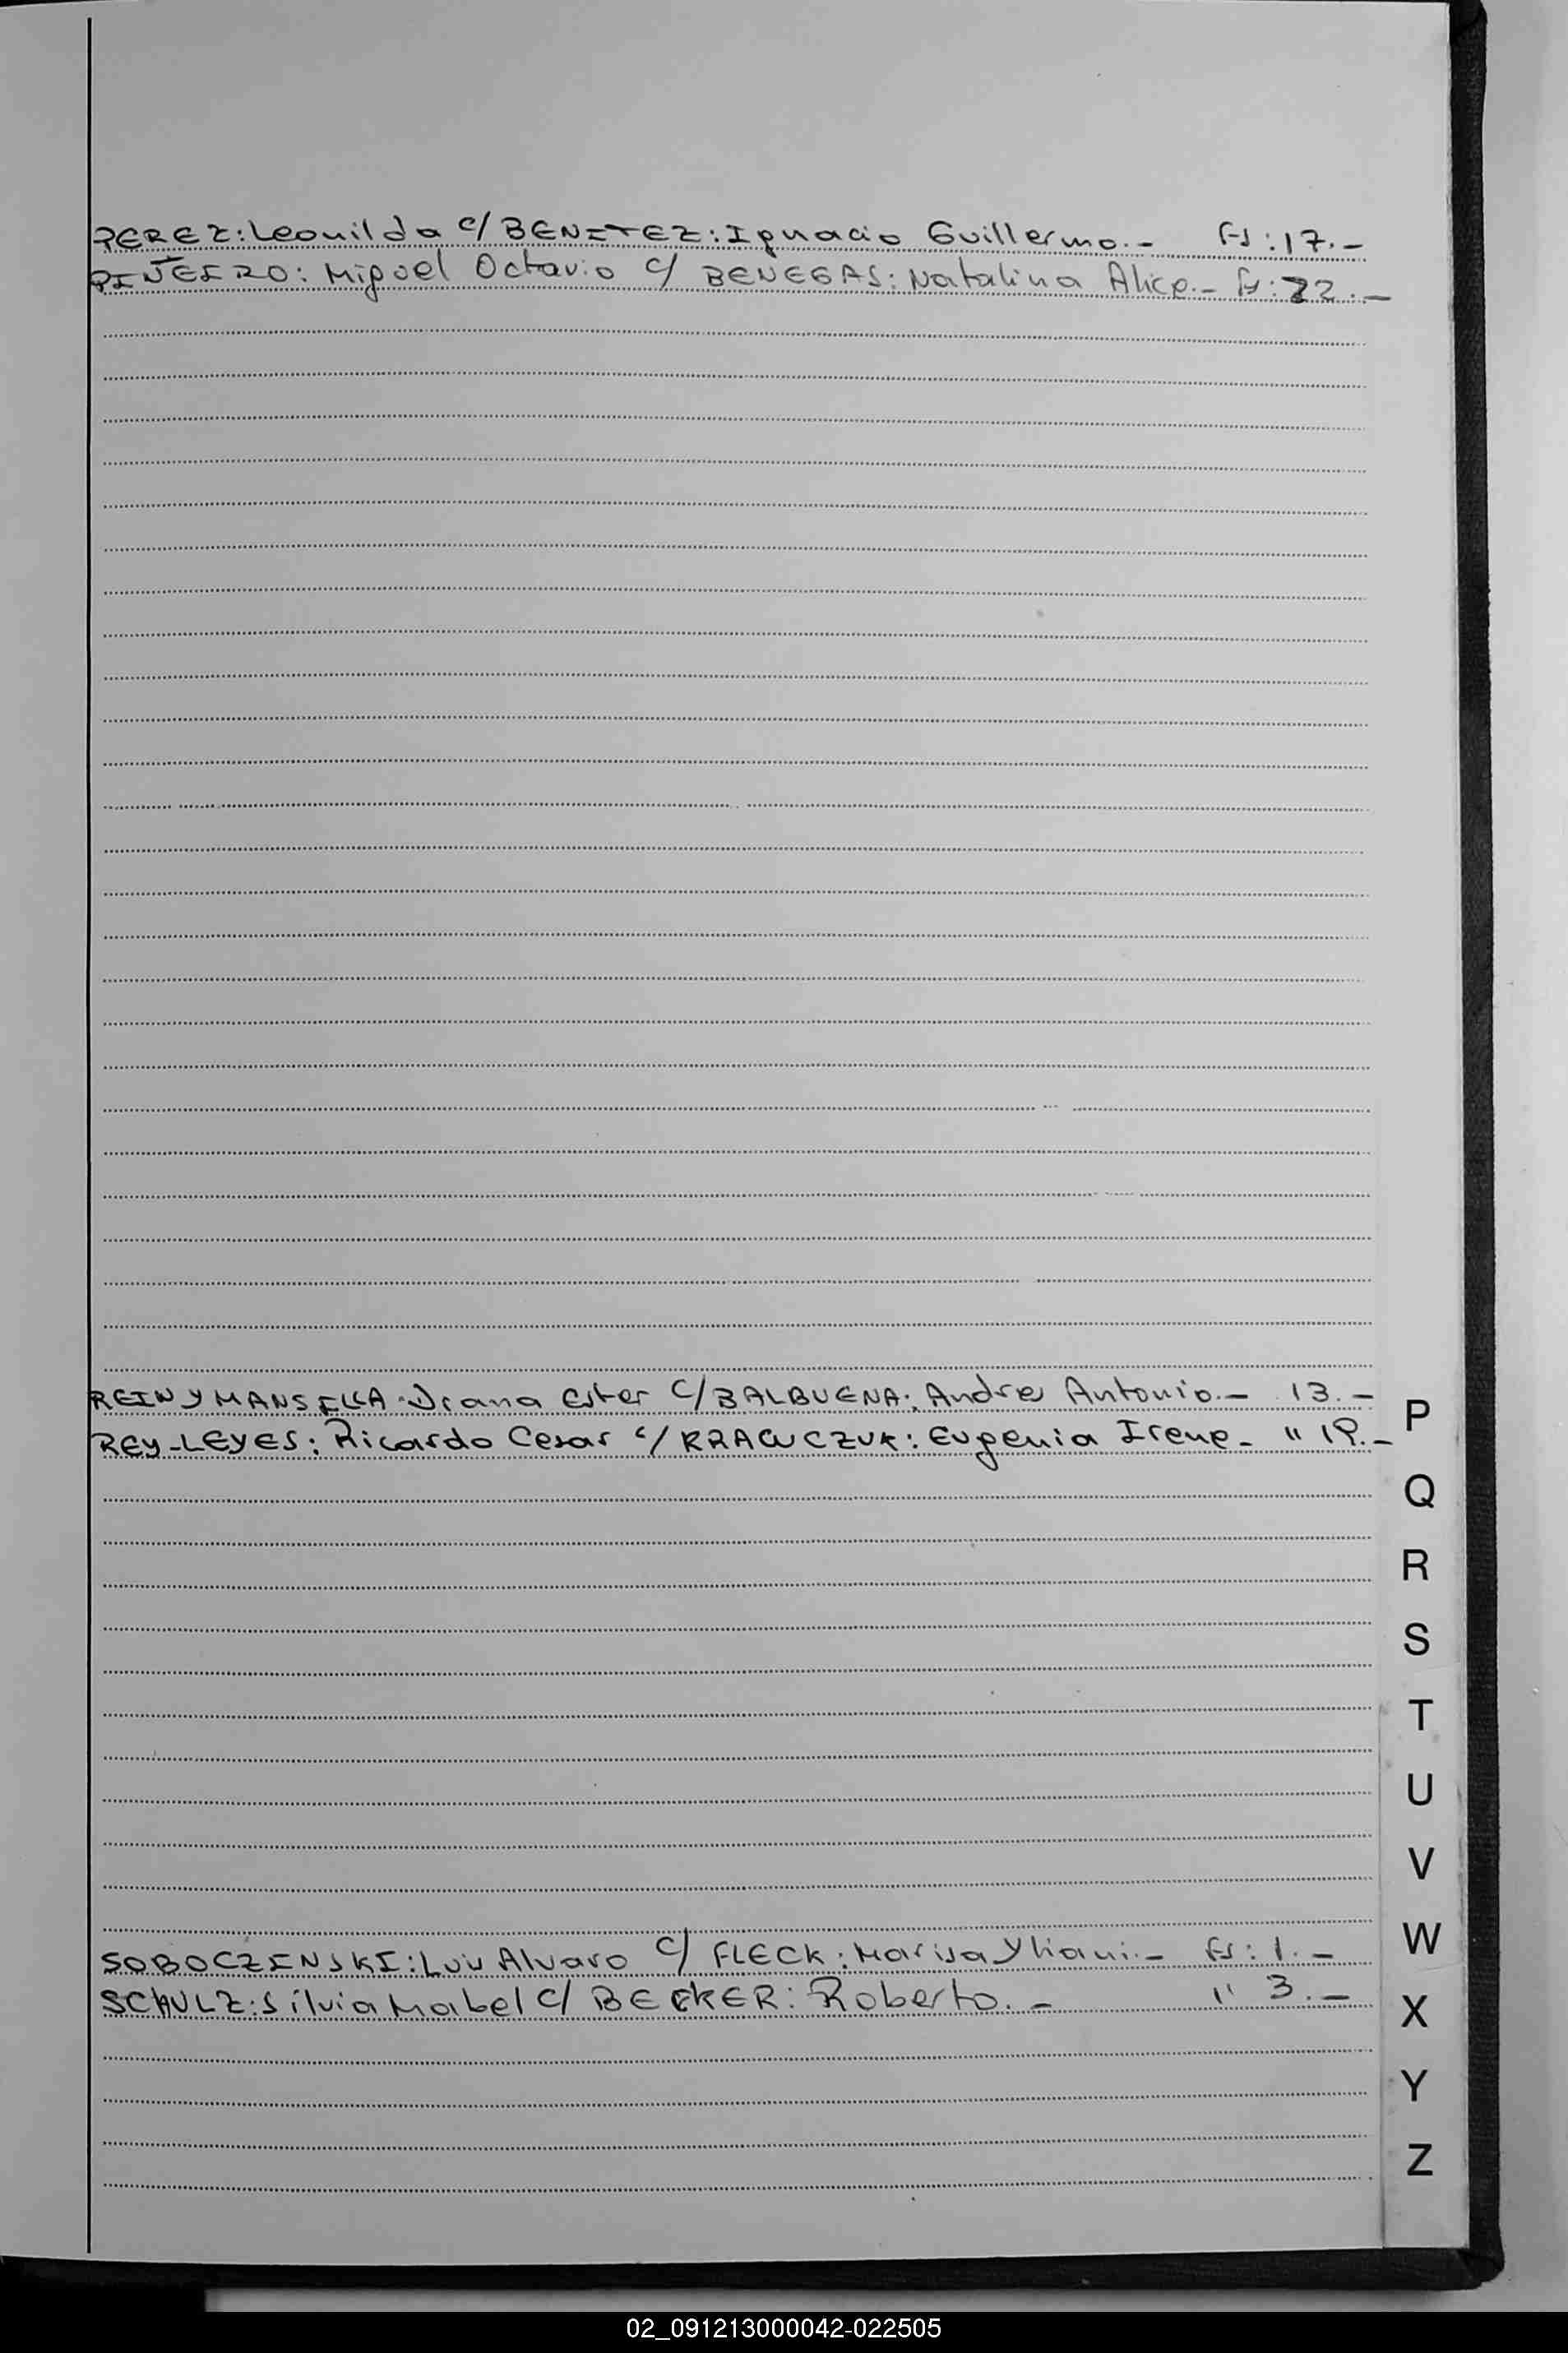 PEREZ: Leonilda c/ BENITEZ: Ignacio Guillermo.- Fs: 17.-
PIÑEIRO: Miguel Octavio c/ BENEGAS: Natalina Alice.- Fs: 22.-
REIN y MANSILLA: Diana Ester c/ BALBUENA: Andres Antonio.- 13.-
REY-LEYES: Ricardo Cesar c/ KRAWCZUK: Eugenia Irene.- " 19.-
P
Q
R
S
T
U
V
SOBOCZINSKI: Luis Alvaro c/ FLECK: Marisa Yliani.- Fs: 1.-
W
SCHULZ: Silvia Mabel c/ BECKER: Roberto.- " 3.-
X
Y
Z
02_091213000042-022505